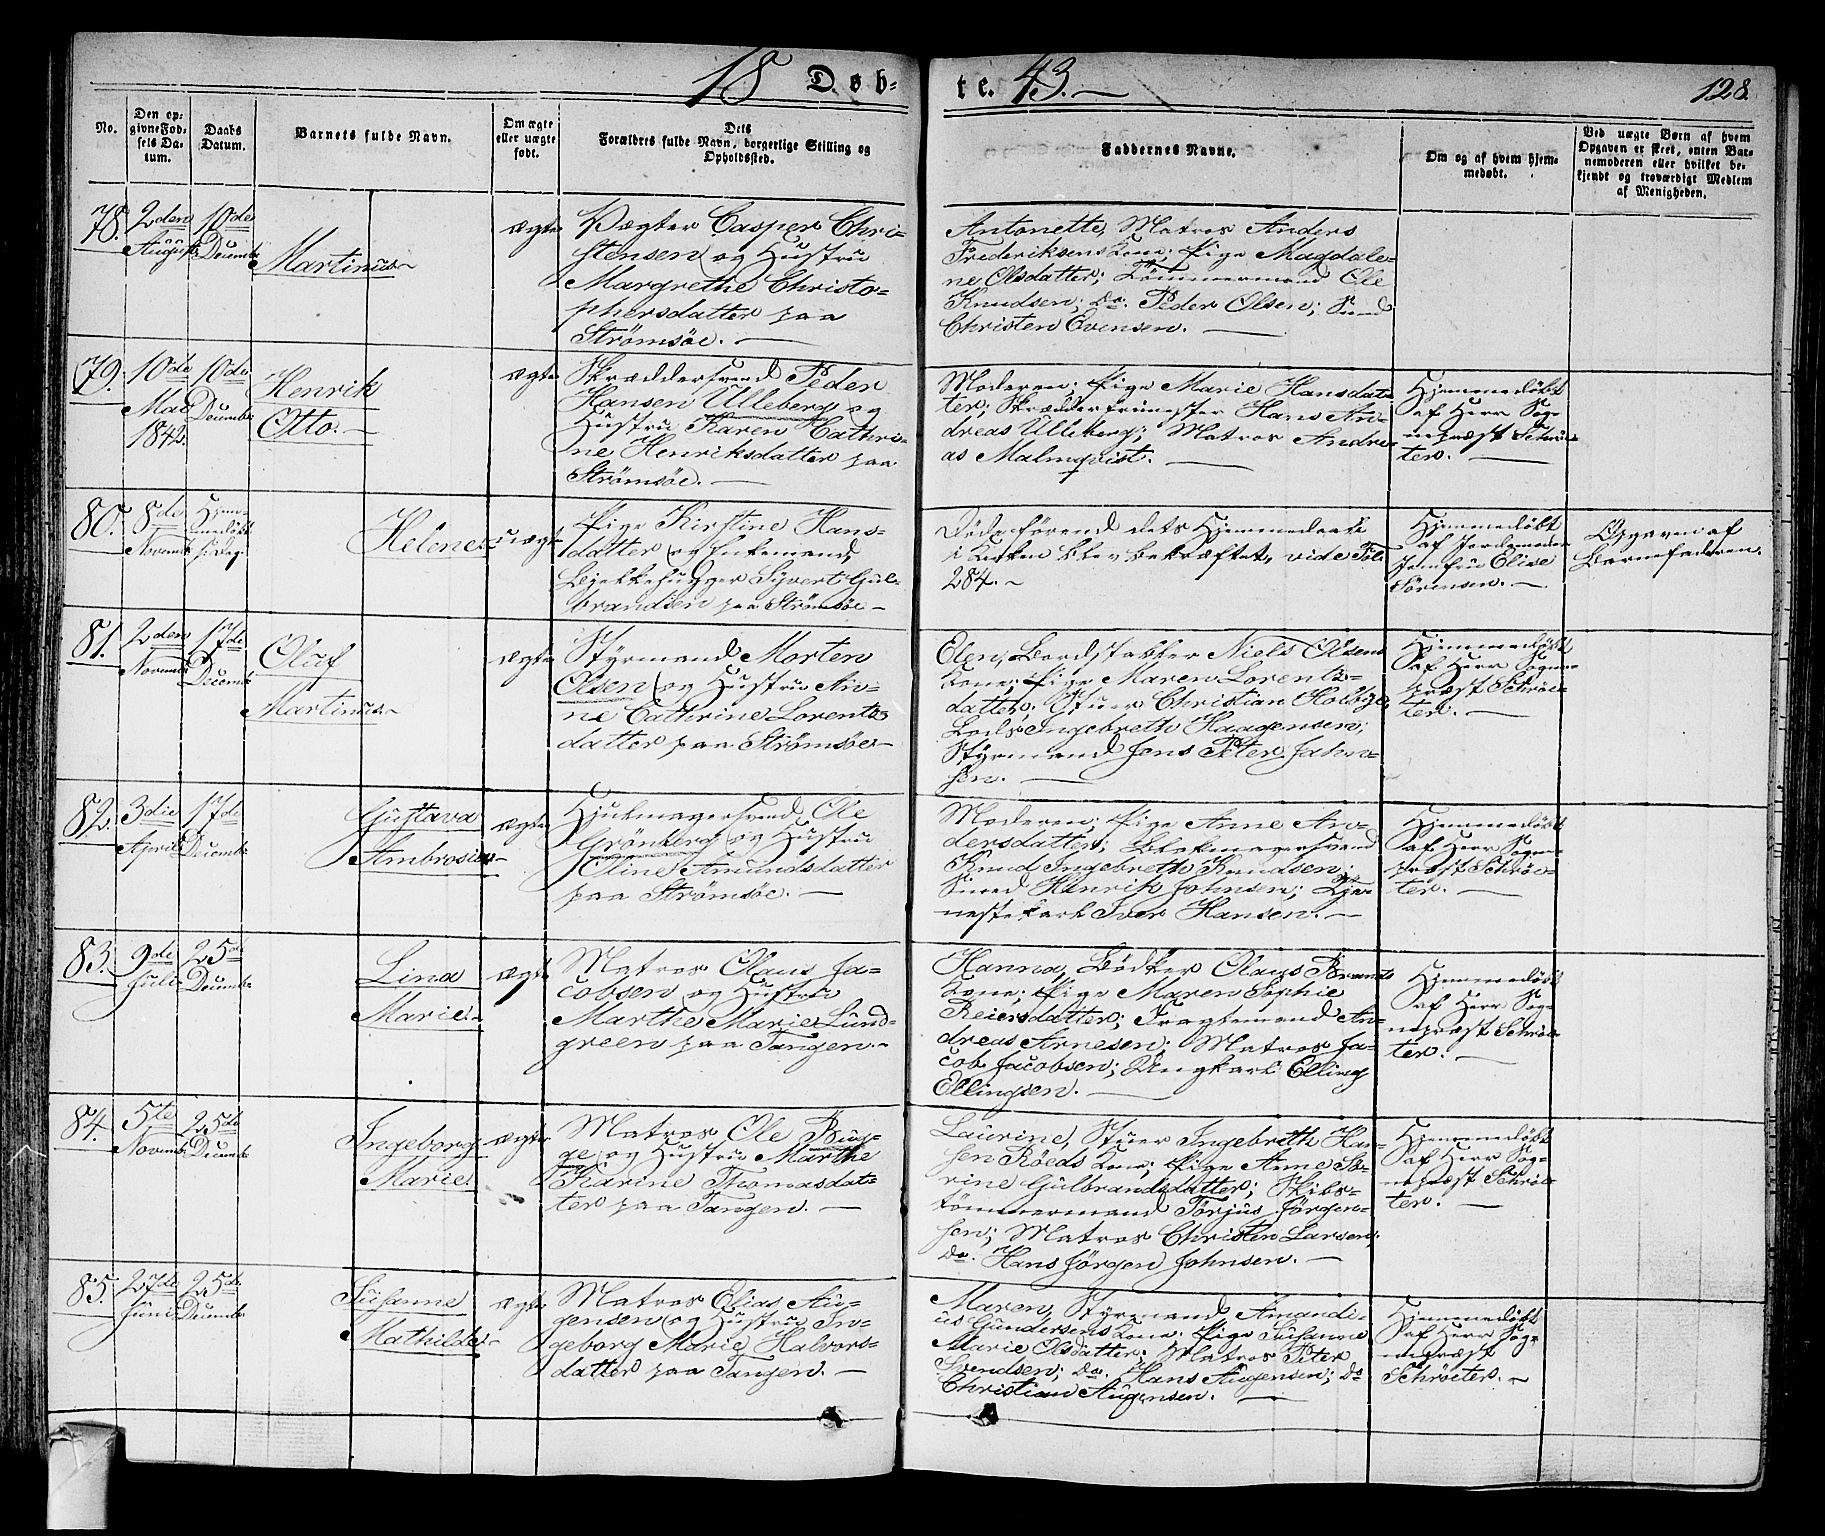 18 Døb- te. 43.
128.
No.
Den op-
givne Fød-
sels Da-
tum.
Daabs
Datum.
Barnets fulde Navn.
Om ægte
eller uægte
født.
Dets
Forældres fulde Navn, borgerlige Stilling og
Opholdssted.
Faddernes Navne.
Om og af hvem hjem-
medøbt.
Ved uægte Børn af hvem
Opgaven er skeet, enten Bar-
nemoderen eller hvilket be-
kjendt og troværdigt Medlem
af Menigheden.
78.
2den
August
10de
Decembr
Martinus
ægte
Vægter Casper Chri-
stensen og Hustru
Margrethe Christo-
phersdatter paa
Strømsøe.
Antonette, Matros Anders
Frederiksens Kone; Pige Magdale-
ne Olsdatter; Tømmermand Ole
Knudsen; do. Peder Olsen;
Christen Evensen.
79.
10de
Mai
1842.
10de
Decembr
Henrik
Otto.
ægte
Skræddersvend Peder
Hansen Ulleberg og
Hustru Karen Cathri-
ne Henriksdatter paa
Strømsøe.
Moderen; Pige Marie Hansdat-
ter; Skræddermester Hans An-
dreas Ulleberg; Matros Andre-
as Malmqvist.
Hjemmedøbt
af Herr Sog-
nepræst Schrøe-
ter.
80.
8de
Novembr
Hjem-
medøbt
Helene
uægte
Pige Kirstine Hans-
datter og Enkemand,
Bjelkehugger Syvert Gul-
brandsen paa Strømsøe
Døde førend dets Hjemmedaab
i Kirken blev bekræftet, vide Fol.
284.
Hjemmedøbt
af Jordemoder
Jomfru Elise
Sørensen.
Opgaven af
Barnefaderen.
81.
2den
Novembr
17de
Decembr
Oluf
Martinus
ægte
Styrmand Morten
Olsen og Hustru An-
ne Cathrine Lorents-
datter paa Strømsøe
Elen, Bordstabler Niels Olsens
Kone; Pige Maren Lorents-
datter; Stuer Christian Holbye,
Lods Ingebreth Haagensen;
Styrmand Jens Peter Jahn-
sen.
Hjemmedøbt
af Herr Sogne-
præst Schrøe-
ter.
82.
3die
April
17de
Decembr
Gustava
Ambrosia
ægte
Hjulmagersvend Ole
Grønberg og Hustru
Oline Amundsdatter
paa Strømsøe.
Moderen; Pige Anne An-
dersdatter; Blokmagersvend
Knud Ingebreth Knudsen;
Svend Henrik Johnsen; Tje-
nestekarl Iver Hansen.
Hjemmedøbt
af Herr Sogne-
præst Schrøe-
ter.
83.
9de
Juli
25de
Decembr
Lina
Marie
ægte
Matros Olaus Ja-
cobsen og Hustru
Marthe Marie Lund-
green paa Tangen.
Hanna, Bødker Olaus Brandts
Kone; Pige Maren Sophie
Reiersdatter; Fragtemand An-
dreas Arnesen; Matros Ja-
cob Jacobsen; Ungkarl Elling
Ellingsen.
Hjemmedøbt
af Herr Sog-
nepræst Schrøe-
ter.
84.
5te
Novembr
25de
Decembr
Ingeborg
Marie
ægte
Matros Ole Bug-
ge og Hustru Marthe
Karine Thomasdat-
ter paa Tangen.
Laurine, Stuer Ingebreth Han-
sen Røeds Kone; Pige Anne Sø-
rine Gulbrandsdatter; Skibs-
tømmermand Torjus Jørgen-
sen; Matros Christen Larsen;
do. Hans Jørgen Johnsen.
Hjemmedøbt
af Herr Sog-
nepræst Schrøe-
ter.
85.
27de
Juni
25de
Decembr
Susanne
Mathilde
ægte
Matros Elias Au-
gensen og Hustru In-
geborg Marie Halvors-
datter paa Tangen.
Maren, Styrmand Amandi-
us Gundersens Kone; Pige Susanne
Marie Olsdatter; Matros Peter
Svendsen; do. Hans Augensen; do
Christian Augensen.
Hjemmedøbt
af Herr Sog-
nepræst
Schrøeter.